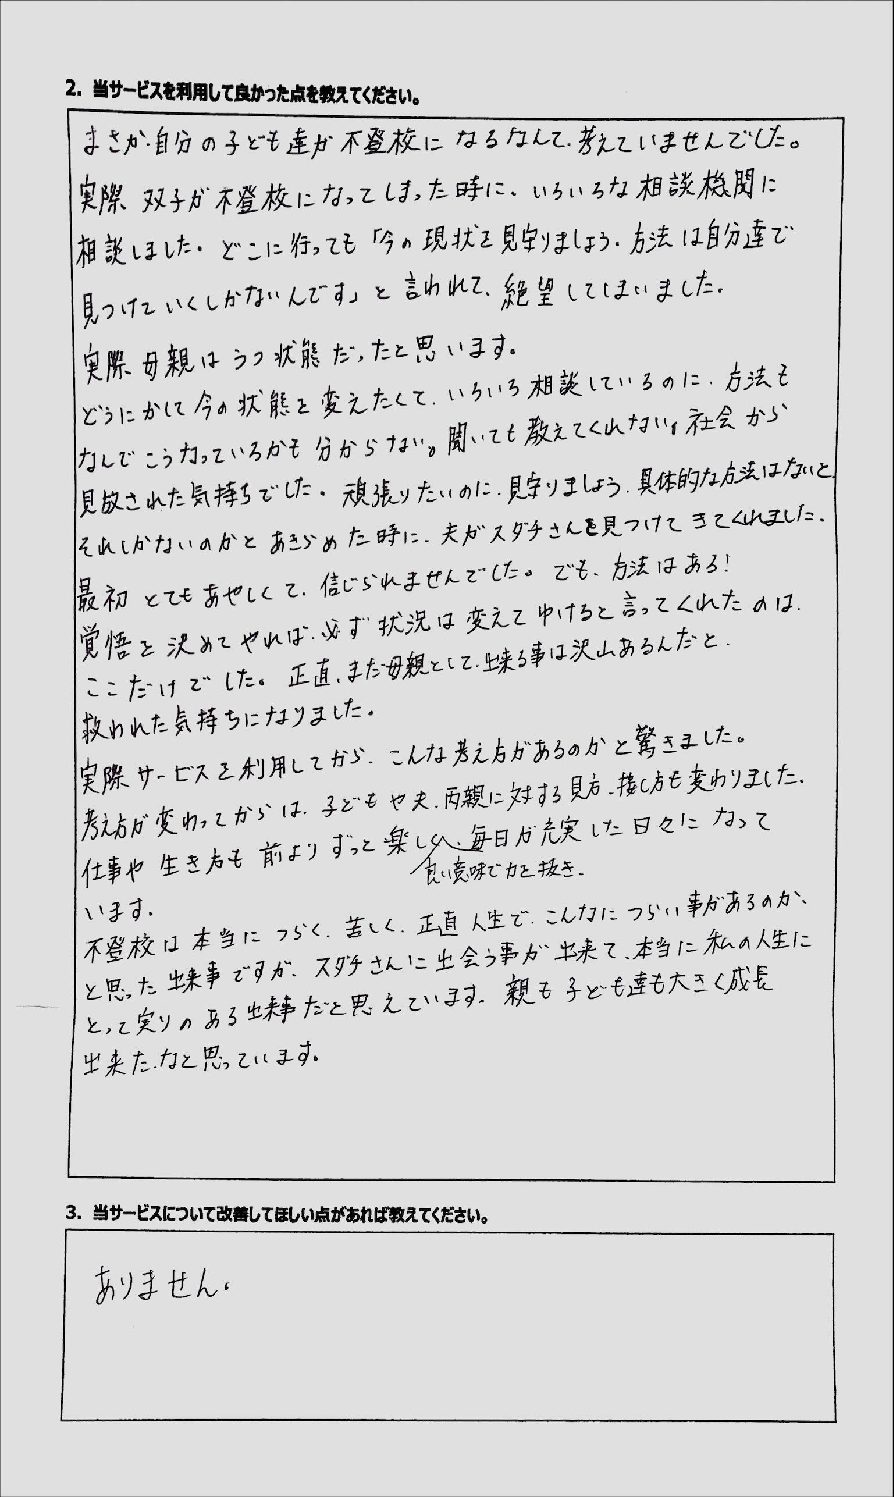 2. 当サービスを利用して良かった点を教えてください。
まさか、自分の子ども達が不登校になるなんて、考えていませんでした。
実際、双子が不登校になってしまった時に、いろいろな相談機関に
相談しました。どこに行っても「今の現状を見守りましょう、方法は自分達で
見つけていくしかないんです」と言われて、絶望してしまいました。
実際、母親はうつ状態だったと思います。
どうにかして今の状態を変えたくて、いろいろ相談しているのに、方法も
なんでこうなっているかも分からない。聞いても教えてくれない。社会から
見放された気持ちでした。頑張りたいのに、見守りましょう、具体的な方法はないと、
それしかないのかとあきらめた時に、夫がスダチさんを見つけてきてくれました。
最初とてもあやしくて、信じられませんでした。でも、方法はある!
覚悟を決めてやれば、必ず状況は変えてゆけると言ってくれたのは、
ここだけでした。正直、まだ母親として、出来る事は沢山あるんだと、
救われた気持ちになりました。
実際サービスを利用してから、こんな考え方があるのかと驚きました。
考え方が変わってからは、子どもや夫、両親に対する見方、接し方も変わりました。
仕事や生き方も前よりずっと楽しく、毎日が充実した日々になって
良い意味で力を抜き、
います。
不登校は本当につらく、苦しく、正直人生で、こんなにつらい事があるのか、
と思った出来事ですが、スダチさんに出会う事が出来て、本当に私の人生に
とって実りのある出来事だと思えています。親も子ども達も大きく成長
出来たなと思っています。
3. 当サービスについて改善してほしい点があれば教えてください。
ありません。